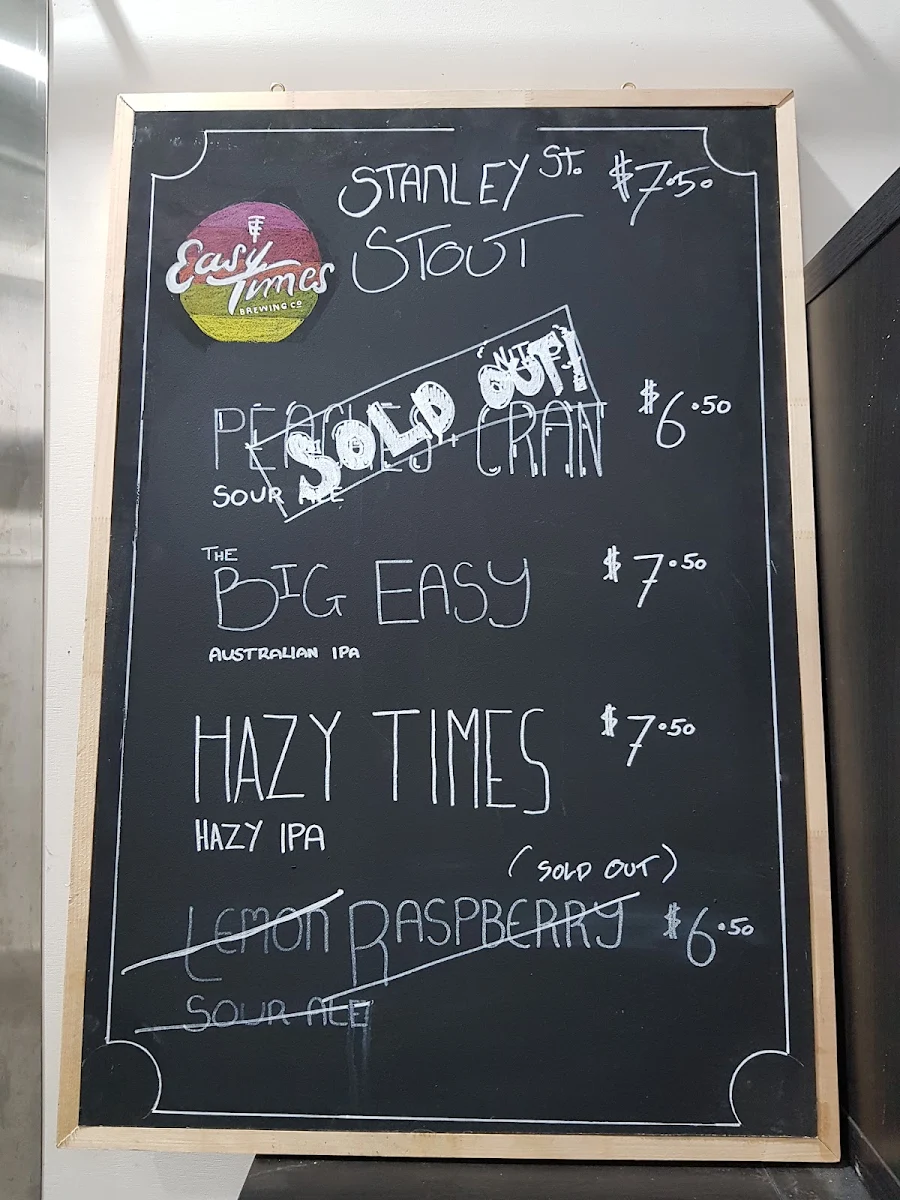 STANLEY ST. $7.50
STOUT
Easy
Times
BREWING CO
SOLD OUT!
CRAN $6.50
SOUR ALE
THE
BIG EASY $7.50
AUSTRALIAN IPA
HAZY TIMES $7.50
HAZY IPA
(SOLD OUT)
LEMON RASPBERRY $6.50
SOUR ALE